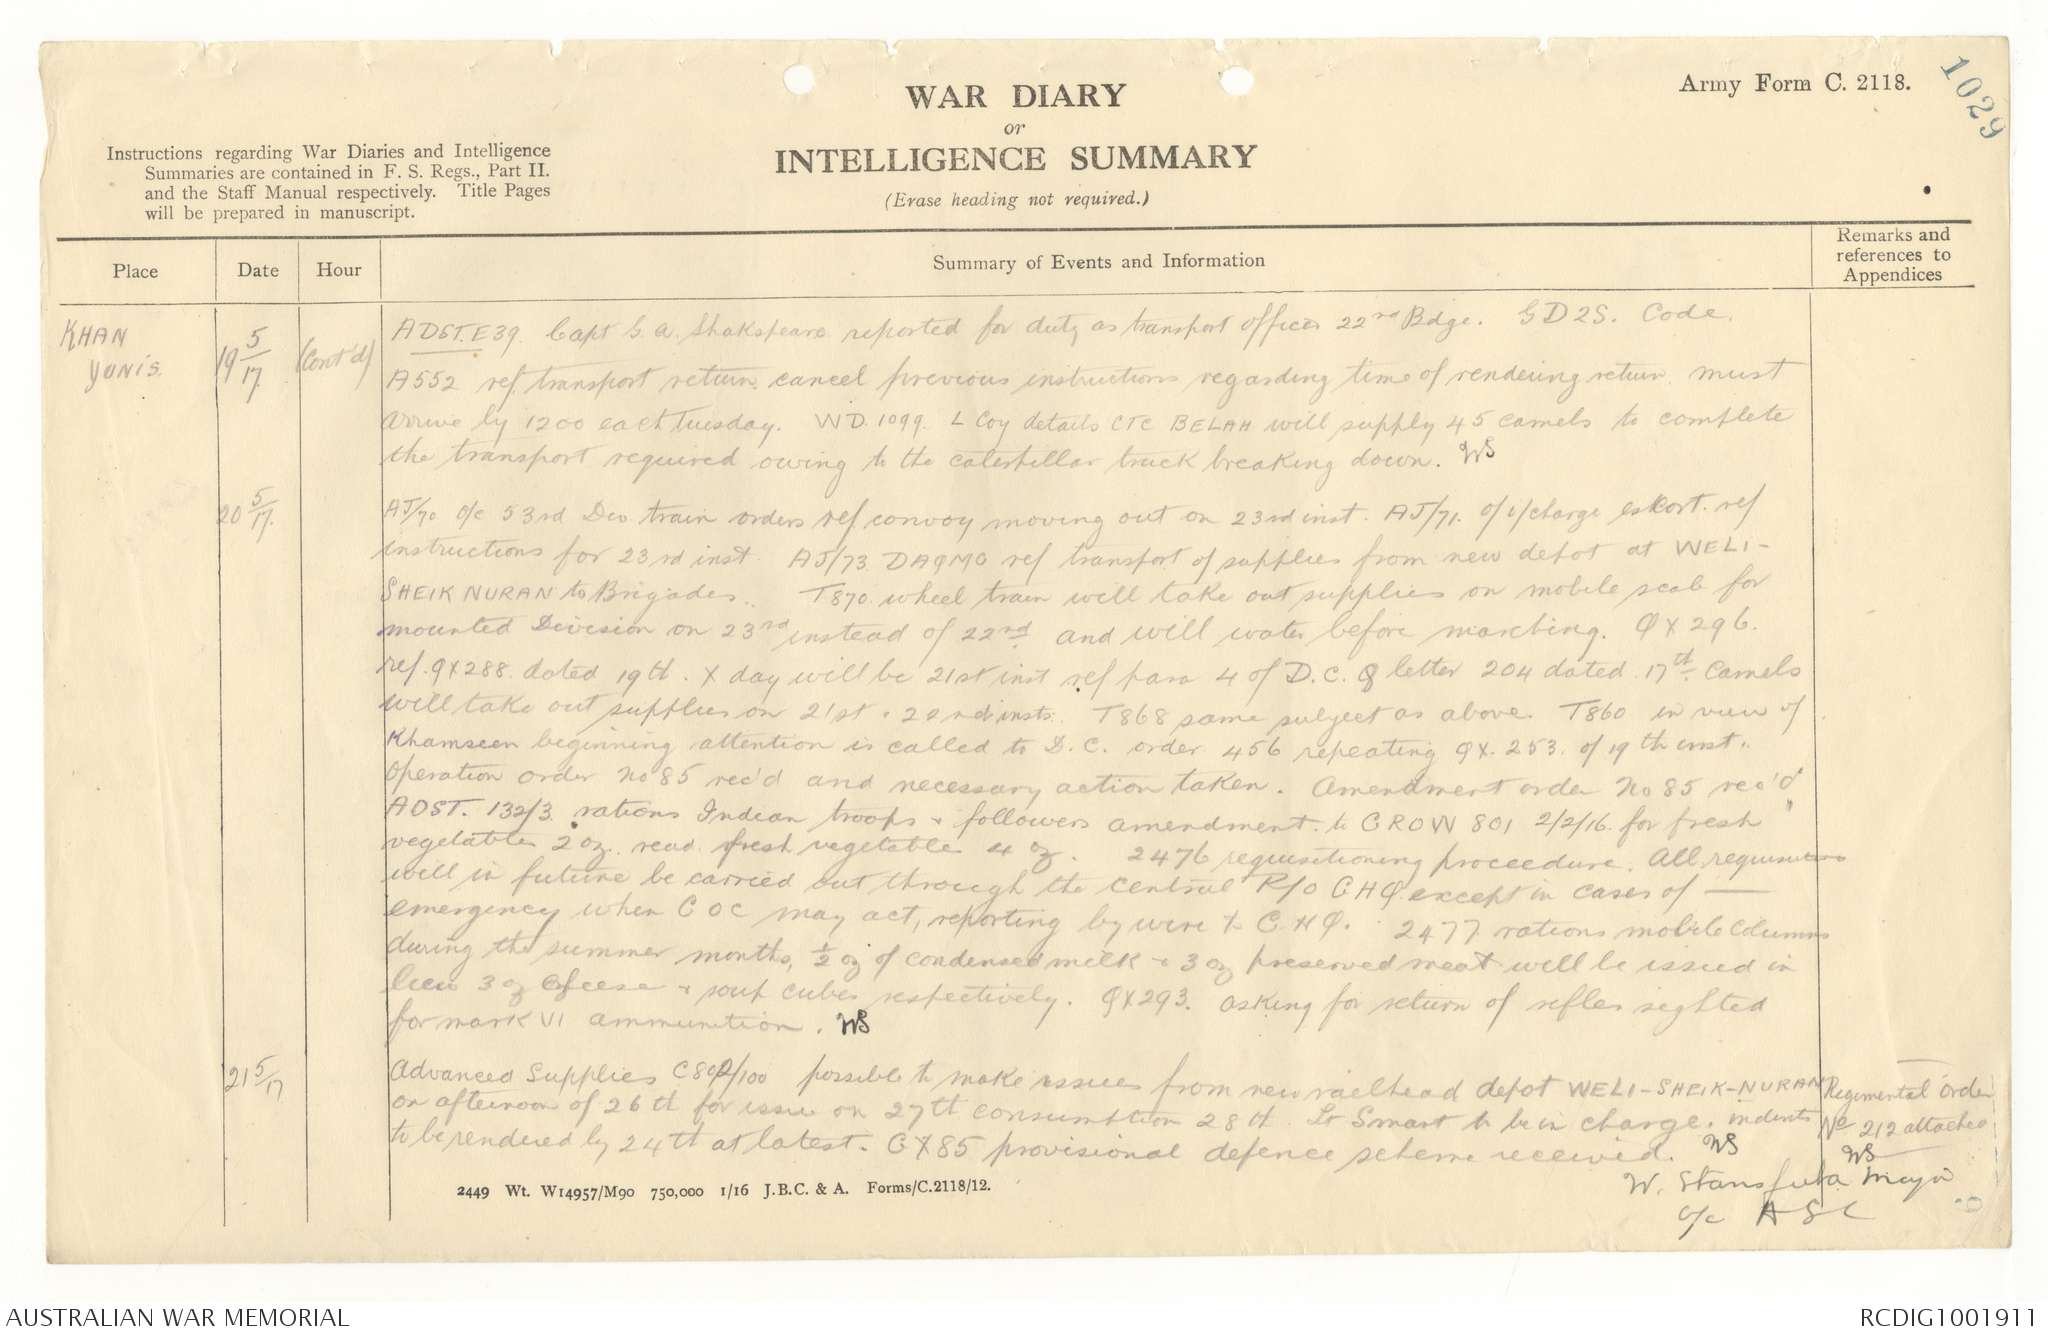 1029
Army Form C. 2118.
WAR DIARY
or
INTELLIGENCE SUMMARY
(Erase heading not required.)
Instructions regarding War Diaries and Intelligence
Summaries are contained in F. S. Regs., Part II.
and the Staff Manual respectively. Title Pages
will be prepared in manuscript.
Place
Date
Hour
Summary of Events and Information
Remarks and
references to
Appendices
KHAN
YUNIS.
19 5/17
(Cont'd)
ADST. E39. Capt G. A. Shakspeare reported for duty as transport officer 22nd Bdge. GD2S. Code.
A552 ref. transport return cancel previous instructions regarding time of rendering return must
arrive by 1200 each Tuesday. WD. 1099. L Coy details CTC BELAH will supply 45 camels to complete
the transport required owing to the caterpillar truck breaking down. WS
20 5/17.
AJ/70 o/c 53rd Div train orders ref convoy moving out on 23rd inst. AJ/71. of i/charge escort. ref
instructions for 23rd inst. AJ/73. DAQMG ref transport of supplies from new depot at WELI-
SHEIK NURAN to Brigades. T870. wheel train will take out supplies on mobile scale for
mounted Division on 23rd instead of 22nd and will water before marching. QX 296.
ref. QX288. dated 19th. X day will be 21st inst ref para 4 of D.C. Q letter 204 dated 17th Camels
will take out supplies on 21st & 22nd insts. T868 same subject as above. T860 in view of
Khamseen beginning attention is called to D.C. order 456 repeating QX. 253. of 19th inst.
Operation order No 85 rec'd and necessary action taken. Amendment order No 85 rec'd
ADST. 132/3. rations Indian troops & followers amendment to GROW 801 2/2/16. for fresh
vegetables 2 oz. read fresh vegetable 4 oz. 2476 requisitioning proceedure. All requisitions
will in future be carried out through the Central R/O GHQ except in cases of —
emergency when GOC may act, reporting by wire to G.H.Q. 2477 rations mobile Columns
during the summer months, ½ oz of condensed milk & 3 oz preserved meat will be issued in
lieu 3 oz Cheese & soup cubes respectively. QX293. asking for return of rifles sighted
for mark VI ammunition. WS
21 5/17
Advanced Supplies /100 possible to make issues from new railhead depot WELI-SHEIK-NURAN
on afternoon of 26th for issue on 27th consumption 28th. Lt Smart to be in charge. indents
to be rendered by 24th at latest. GX85 provisional defence scheme received. WS
Regimental Order
No 212 attached
WS
W. Major
o/c ASC
2449 Wt. W14957/M90 750,000 1/16 J.B.C. & A. Forms/C.2118/12.
AUSTRALIAN WAR MEMORIAL
RCDIG1001911